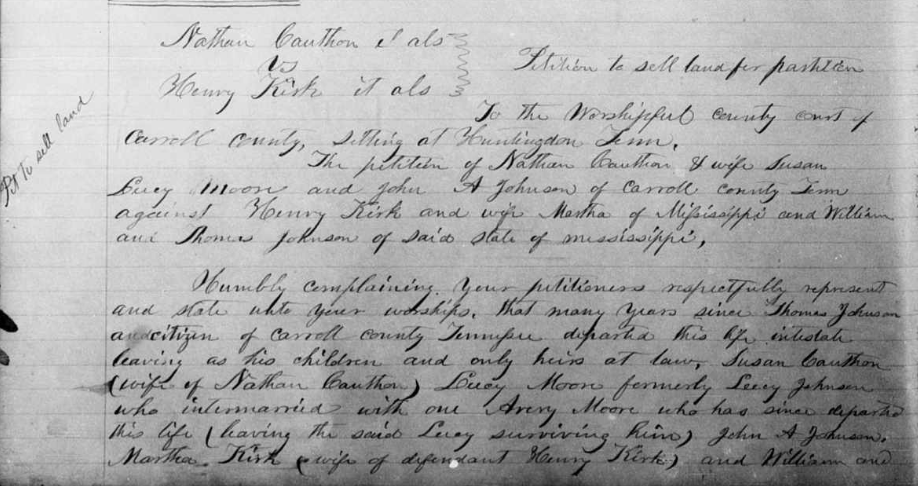 Nathan Cauthon et als
vs
Henry Kirk et als
Petition to sell land for partition
Pet to sell land
To the Worshipful county court of
Carroll county, sitting at Huntingdon Tenn.
The petition of Nathan Cauthon & wife Susan
Lucy Moore and John A Johnson of Carroll county Tenn
against Henry Kirk and wife Martha of Mississippi and William
and Thomas Johnson of said state of mississippi,
Humbly complaining. Your petitioners respectfully represent
and state unto your worships, that many years since Thomas Johnson
and citizen of Carroll county Tennessee departed this life intestate
leaving as his children and only heirs at law, Susan Cauthon
(wife of Nathan Cauthon) Lucy Moore formerly Lucy Johnson
who intermarried with one Avery Moore who has since departed
this life (leaving the said Lucy surviving him) John A Johnson.
Martha Kirk (wife of defendant Henry Kirk) and William and